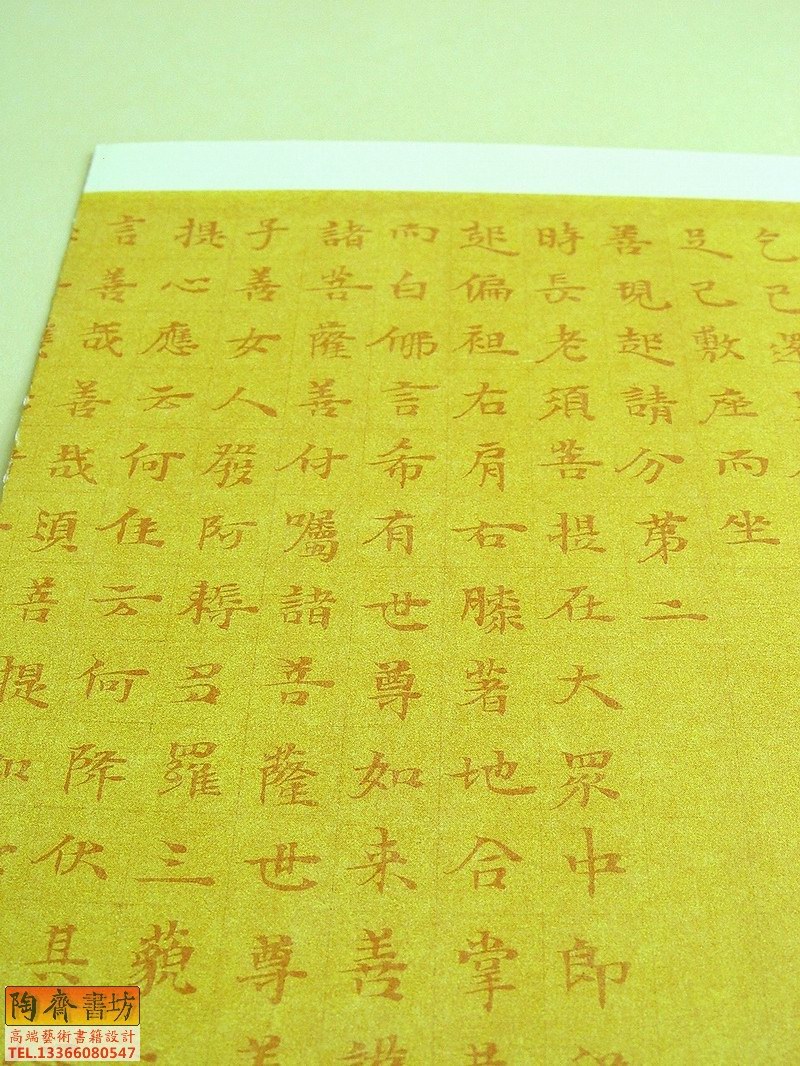 乞已還
足已敷座而坐
善現起請分第二
時長老須菩提在大眾中即
起偏袒右肩右膝著地合掌
而白佛言希有世尊如来善
諸菩薩善付囑諸菩薩世尊善
子善女人發阿耨多羅三藐
提心應云何住云何降伏其
言善哉善哉須菩提如
陶齋書坊
高端藝術書籍設計
TEL.13366080547